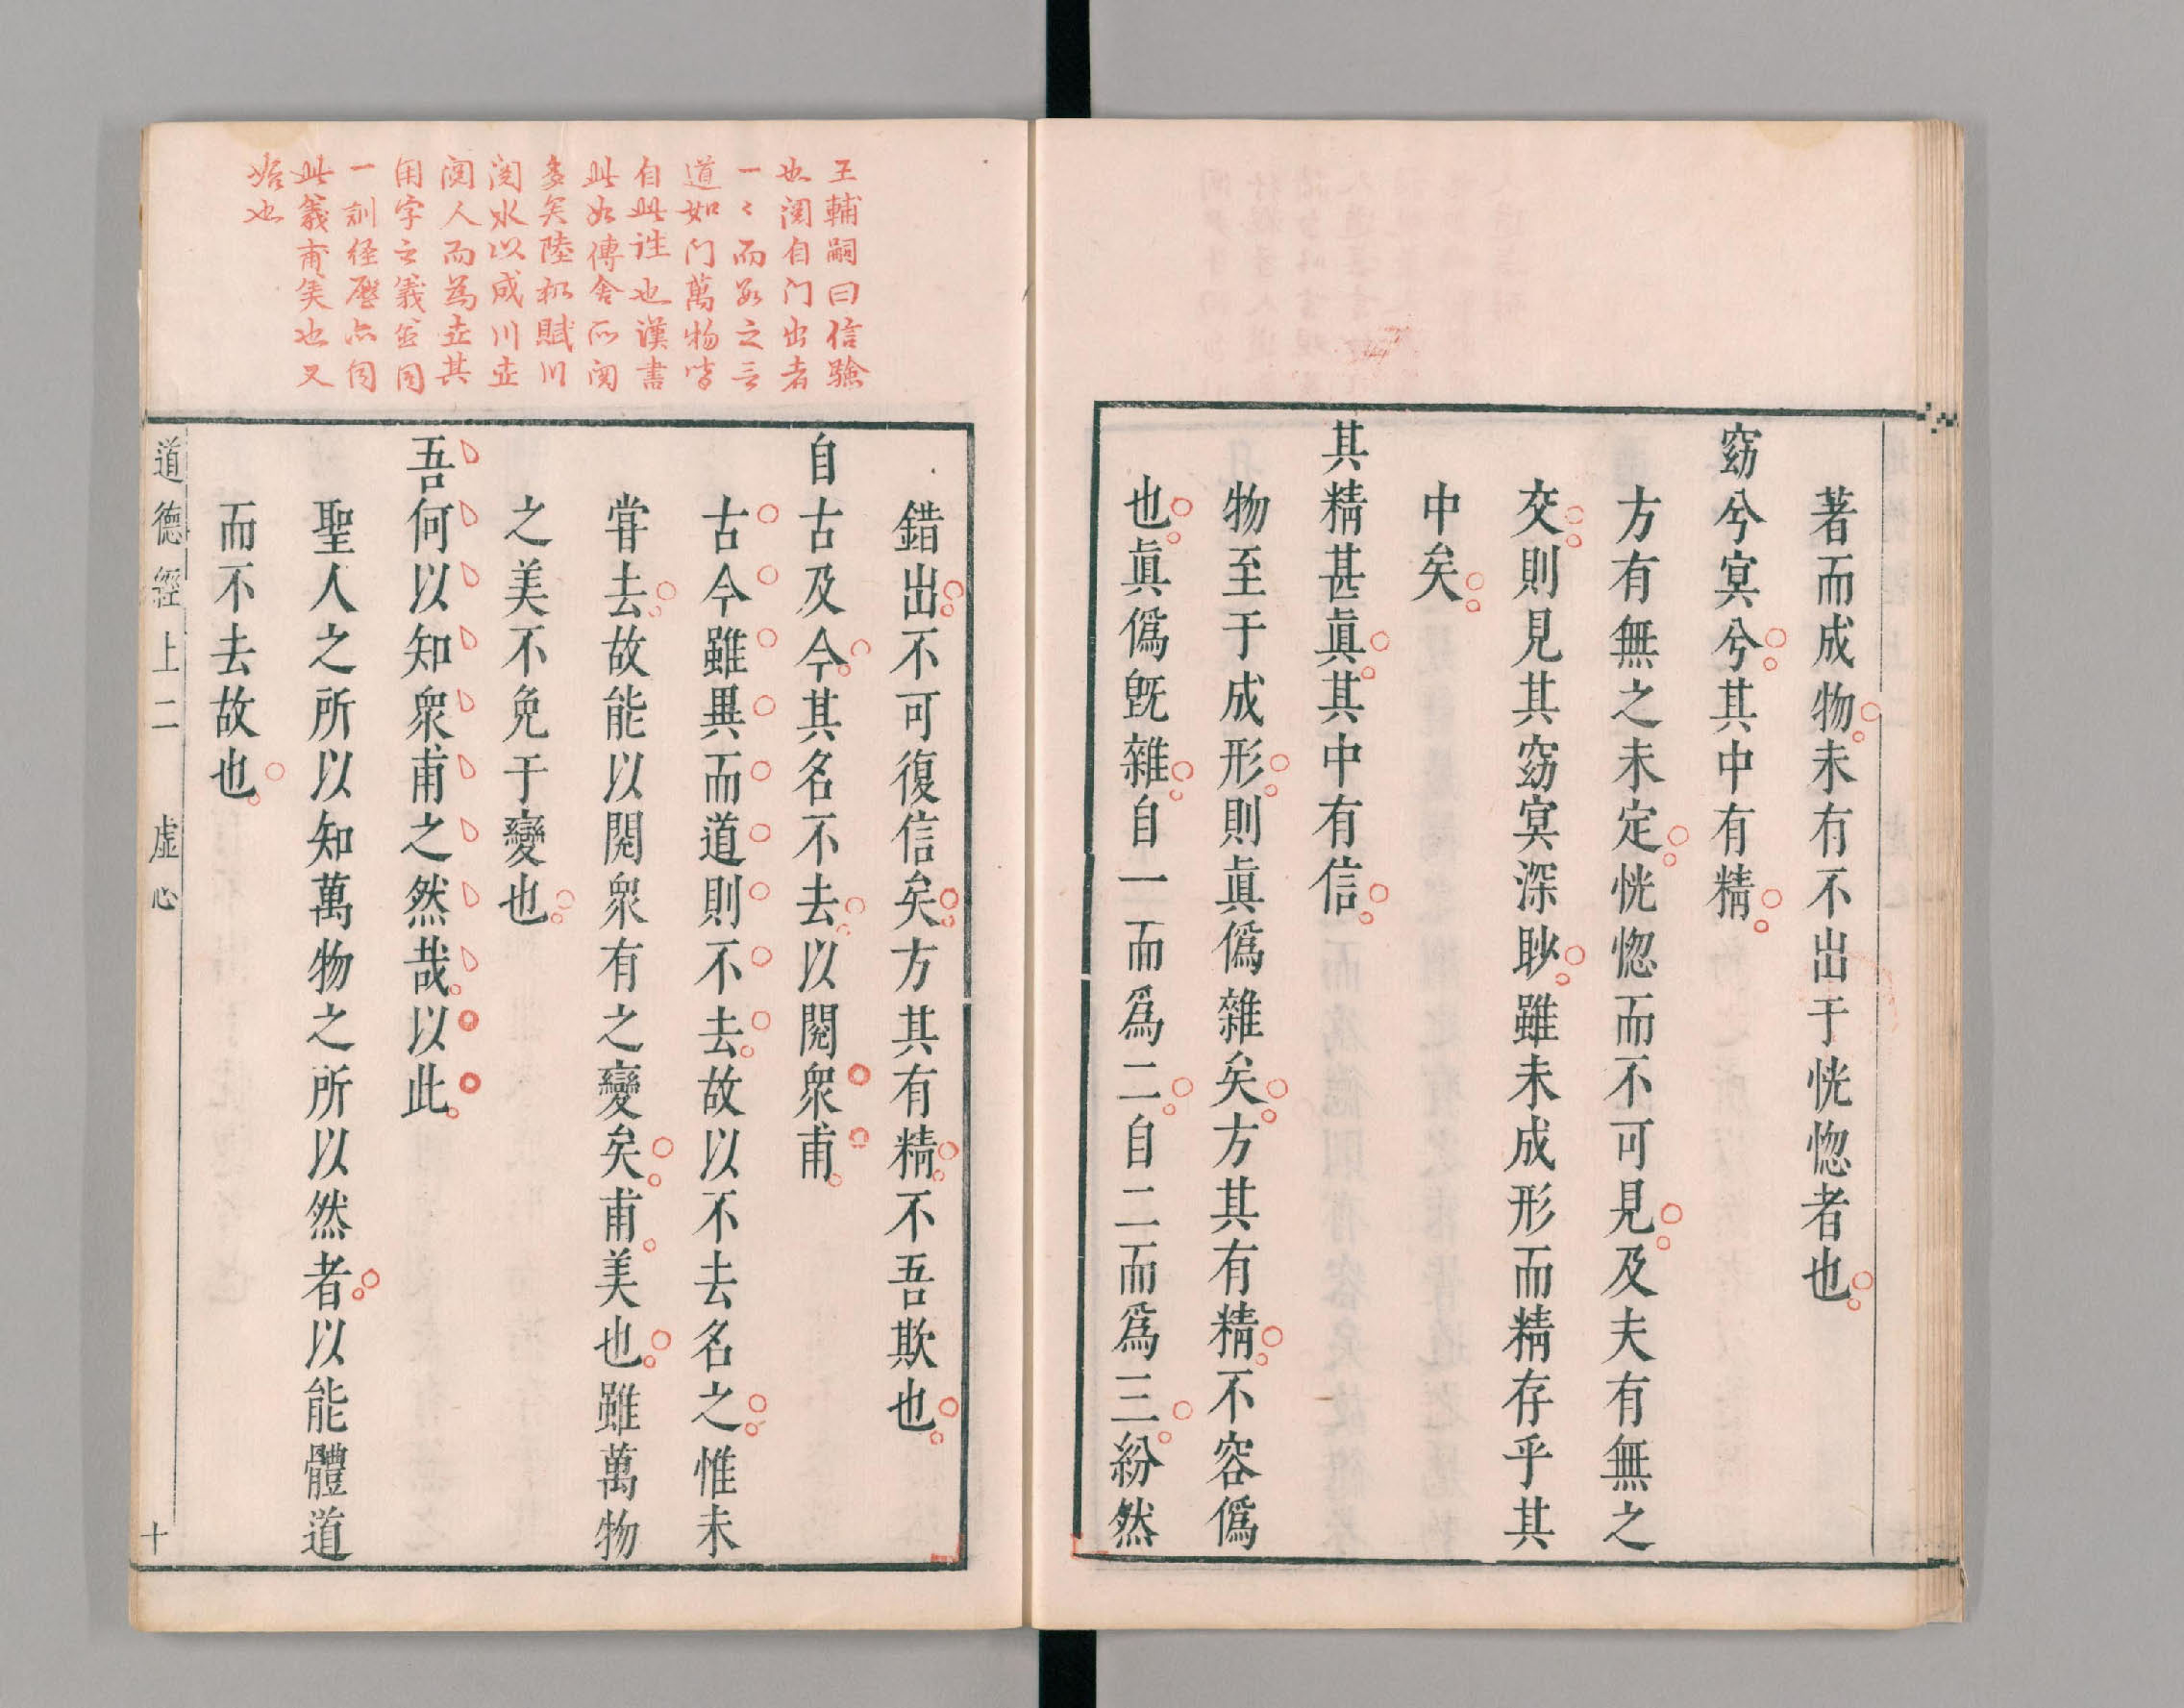 著而成物未有不出于恍惚者也
窈兮冥兮其中有精
方有無之未定恍惚而不可見及夫有無之
交則見其窈冥深眇雖未成形而精存乎其
中矣
其精甚眞其中有信
物至于成形則眞僞雜矣方其有精不容僞
也眞僞旣雜自一而爲二自二而爲三紛然
王輔嗣曰信驗
也閱自门出者
一〻而數之言
道如门萬物皆
自此往也漢書
此如傳舍所閱
多矣陸機賦川
閱水以成川世
閱人而為世其
用字之義並同
一訓経歷亦同
此義甫美也又
始也
錯出不可復信矣方其有精不吾欺也
自古及今其名不去以閱衆甫
古今雖異而道則不去故以不去名之惟未
嘗去故能以閱衆有之變矣甫美也雖萬物
之美不免于變也
吾何以知衆甫之然哉以此
聖人之所以知萬物之所以然者以能體道
而不去故也
道德經上二 虛心 十